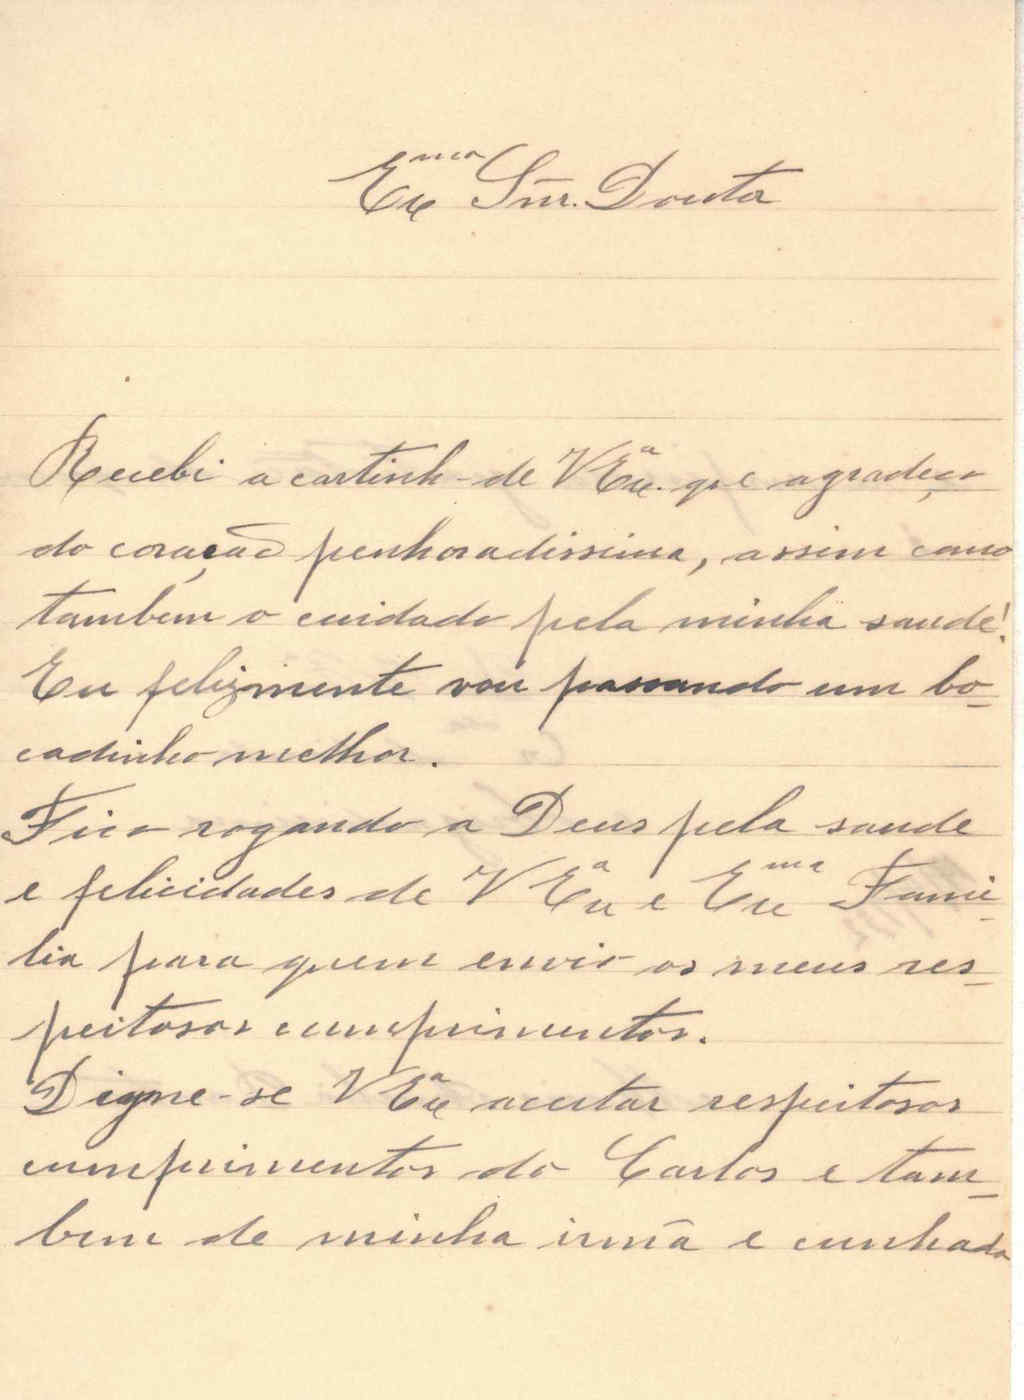 Exma Snr. Doutor
Recebi a cartinh de V Exa. que agradeço
do coração penhoradissima, assim como
tambem o cuidado pela minha saude!
Eu felizmente vou passando um bo-
cadinho melhor.
Fico rogando a Deus pela saude
e felicidades de V Exa e Exma Fami-
lia para quem envio os meus res-
peitosos cumprimentos.
Digne-se V Exa aceitar respeitosos
cumprimentos do Carlos e tam-
bem de minha irmã e cunhado